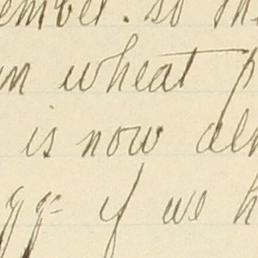 ember. so th
n wheat p
is now al
gg= if we h